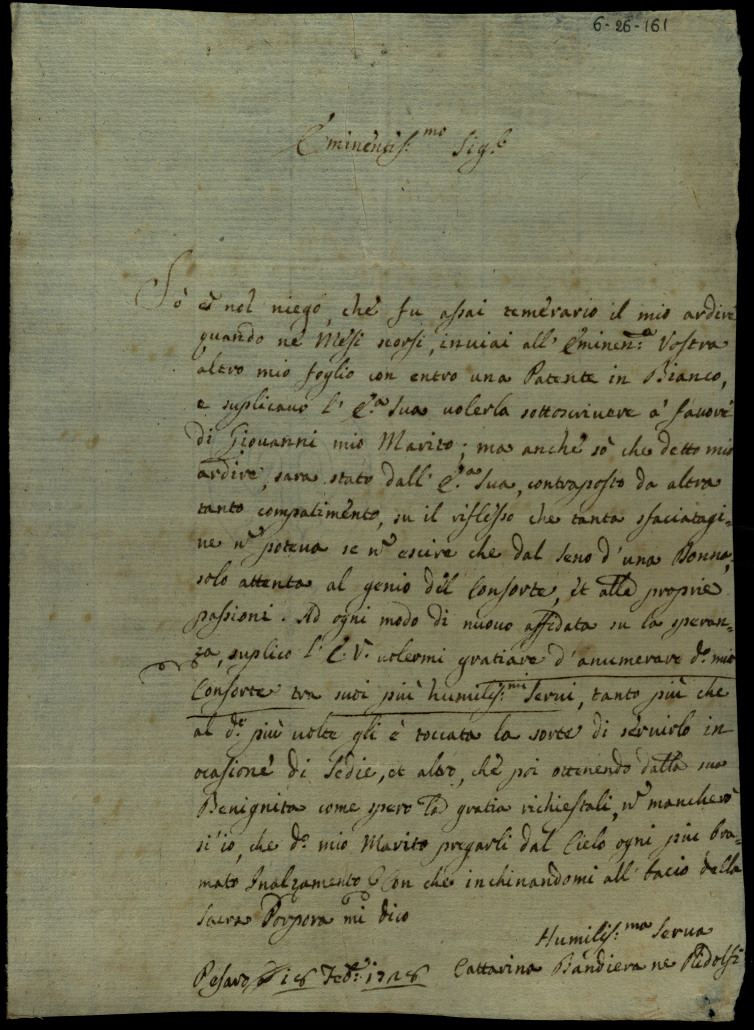 6-26-161
Eminentis.mo Sig.e
Sò e nol niego, che fu assai temerario il mio ardire
quando ne Mesi scorsi, inviai all' Eminen.a Vostra
altro mio foglio con entro una Patente in Bianco,
e suplicavo l' E.a Sua volerla sottoscrivere à favore
di Giovanni mio Marito; ma anche sò che detto mio
ardire, sara stato dall' E.a Sua, contraposto da altra
tanto compatimento, su il riflesso che tanta sfaciatagi=
ne n̄ poteva se n̄ escire che dal seno d' una Donna,
solo attenta al genio del Consorte, et alle proprie
passioni. Ad ogni modo di nuovo affidata su la speran=
za, suplico l' E. V. volermi gratiare d' anumerare d.o mio
Consorte tra suoi più humilis.mi Servi, tanto più che
al d.o più volte gli è toccata la sorte di servirlo in
ocasione di Sedie, et altro, che poi ottenendo dalla sua
Benignita come spero la gratia richiestali, n̄ mancherò
si' io, che d.o mio Marito pregarli dal Cielo ogni piu bra=
mato Inalzamento Con che inchinandomi all' bacio della
Sacra Porpora mi dico
Humilis.ma Serva
Pesaro 18 Feb.o 1728 Cattarina Bandiera ne Ridolfi